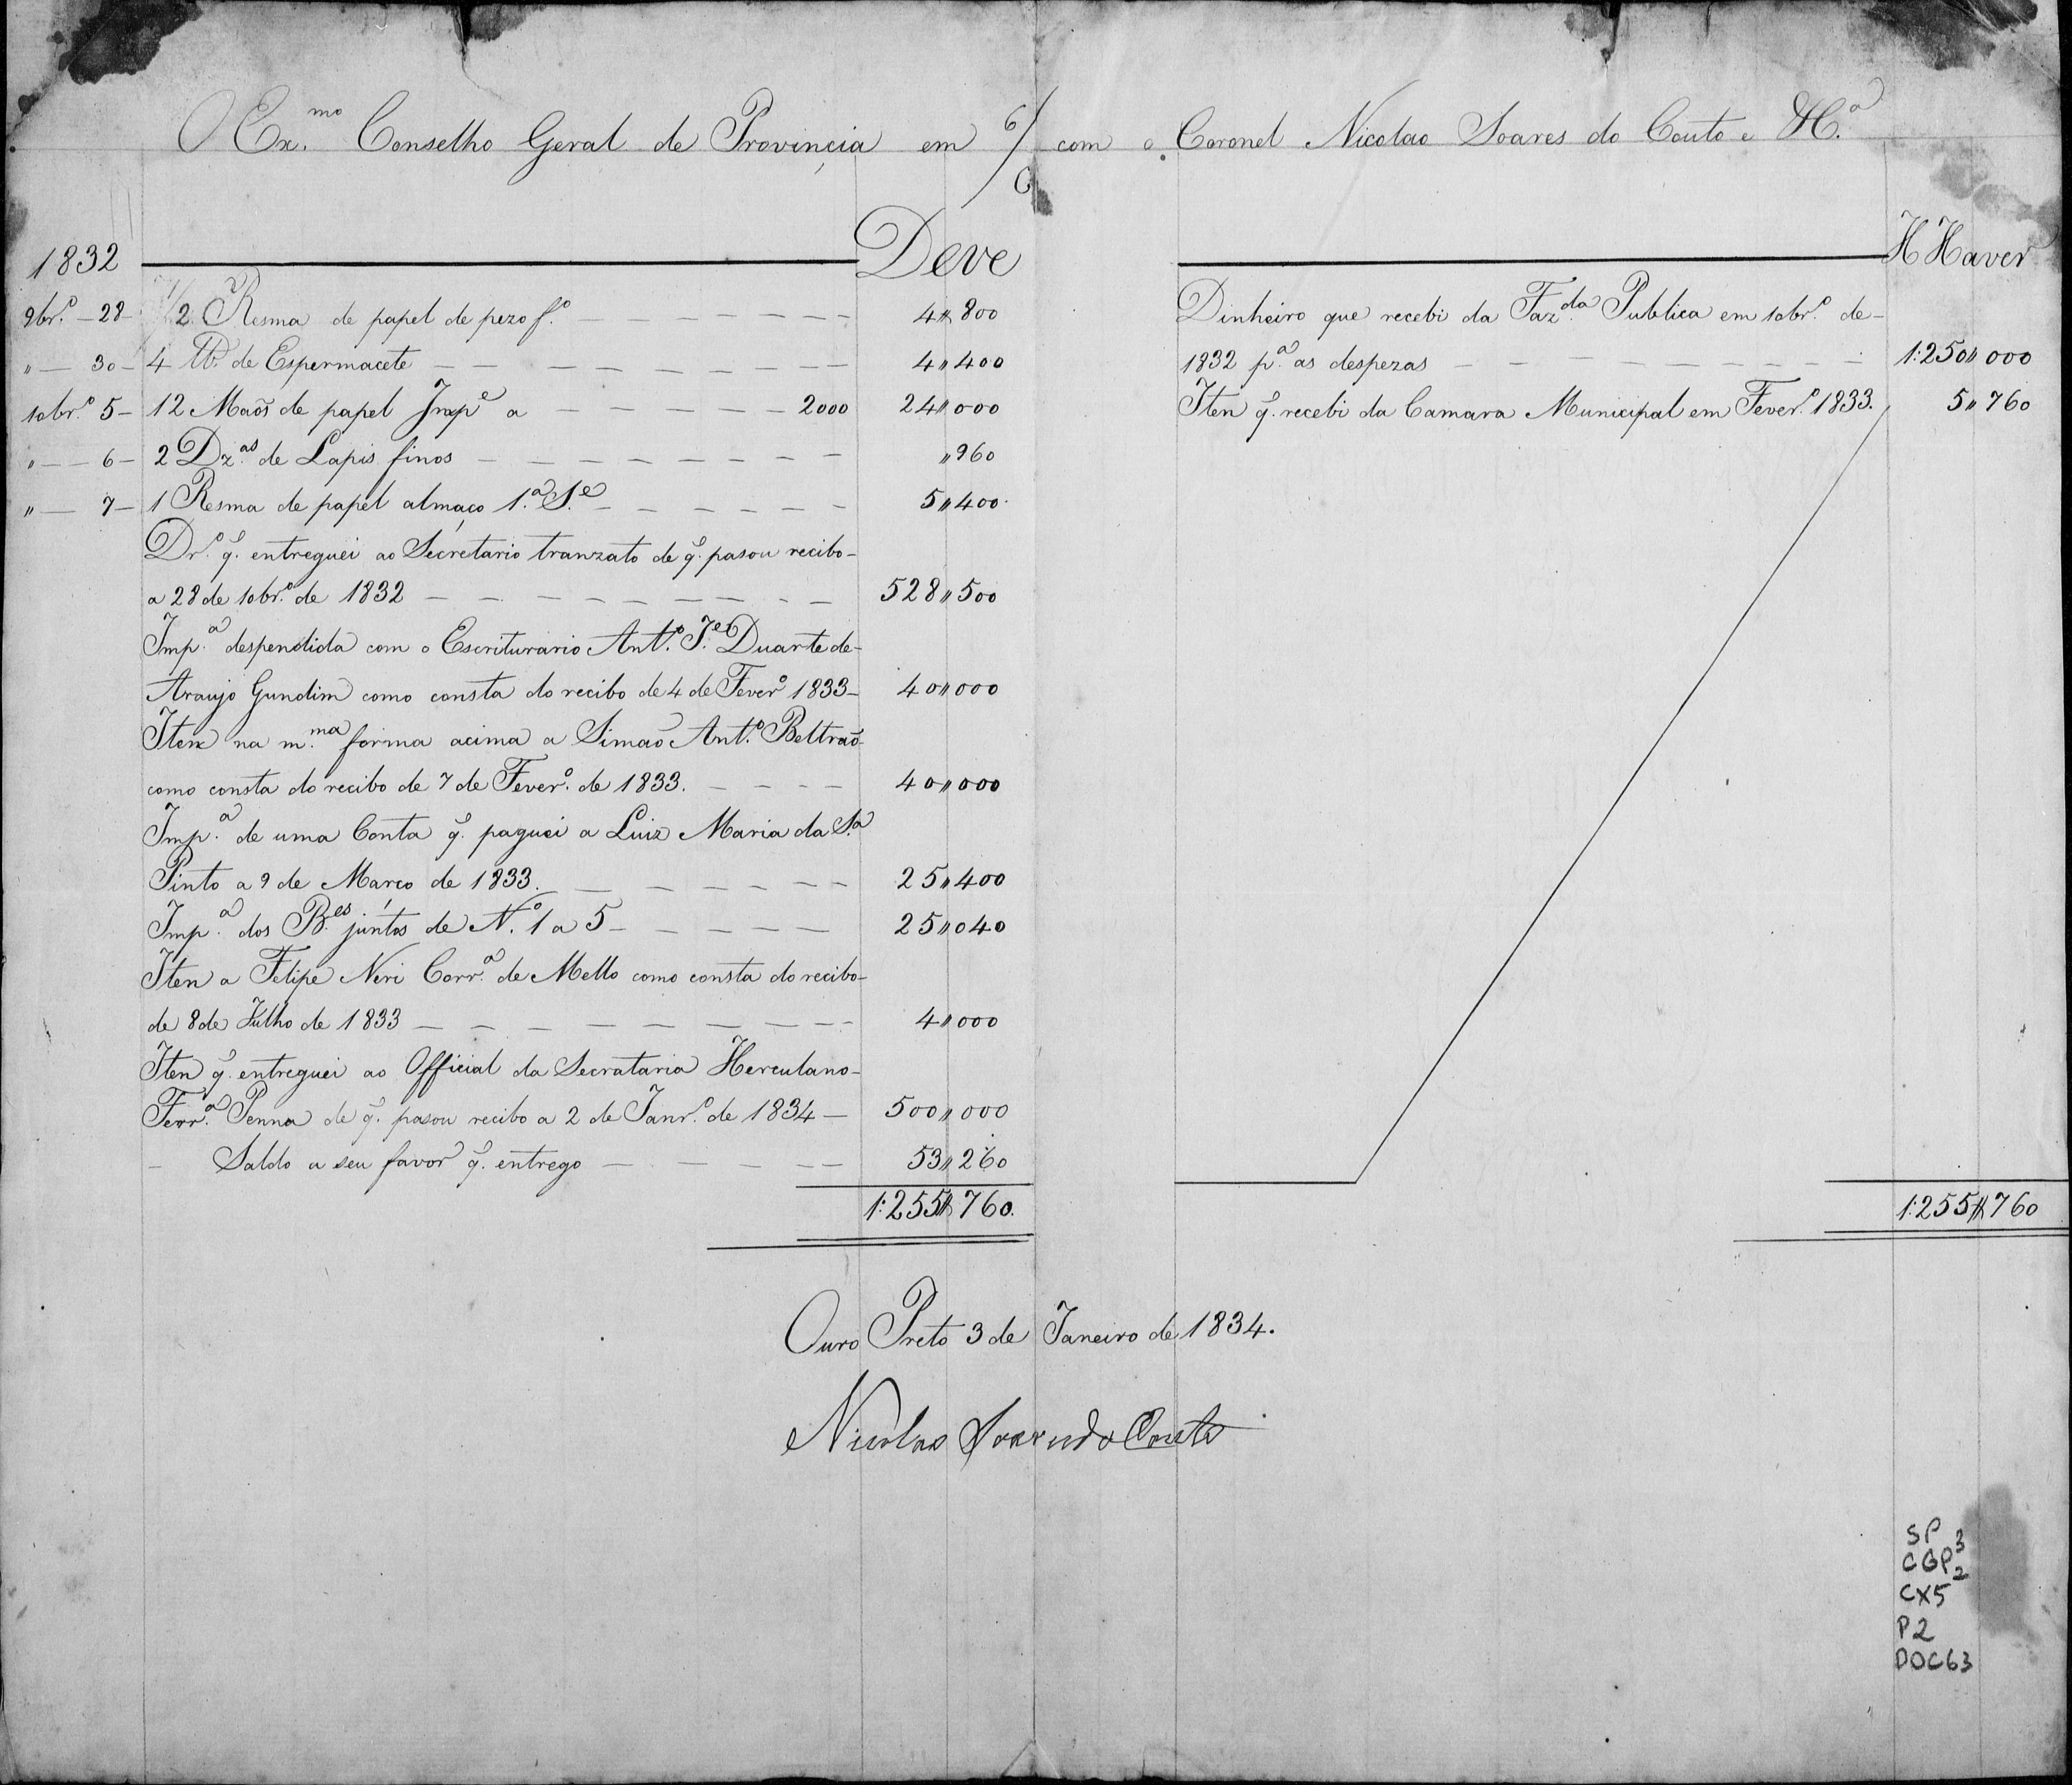 O Ex.mo Conselho Geral de Provincia em C/C com o Coronel Nicolao Soares do Couto e H.a
1832 Deve
9br.o — 28 — 1/2 Resma de papel de pezo f.o 4,,800
,, — 30 — 4 lb.s de Espermacete 4,,400
10br.o 5 — 12 Maõs de papel Imp.e a 2000 24,,000
,, — 6 — 2 Dz.as de Lapis finos ,,960
,, — 7 — 1 Resma de papel almaço 1.a S.e 5,,400
Dr.o q. entreguei ao Secretario tranzato de q. pasou recibo
a 28 de 10br.o de 1832 528,,500
Imp.a despendida com o Escriturario Ant.o J.e Duarte de
Araujo Gundim como consta do recibo de 4 de Fever.o 1833 — 40,,000
Iten na m.ma forma acima a Simaõ Ant.o Beltraõ
como consta do recibo de 7 de Fever.o de 1833. 40,,000
Imp.a de uma Conta q. paguei a Luiz Maria da S.a
Pinto a 9 de Março de 1833. 25,,400
Imp.a dos B.es juntos de N.o 1 a 5 25,,040
Iten a Felipe Neri Corr.a de Mello como consta do recibo
de 8 de Julho de 1833 4,,000
Iten q. entreguei ao Official da Secrataria Herculano
Ferr.a Penna de q. pasou recibo a 2 de Janr.o de 1834 — 500,,000
Saldo a seu favor q. entrego 53,,260
1:255,,760.
H Haver
Dinheiro que recebi da Faz.da Publica em 10br.o de
1832 p.a as despezas 1:250,,000
Iten q. recebi da Camara Municipal em Fever.o 1833. 5,,760
1:255,,760
Ouro Preto 3 de Janeiro de 1834.
Nicolao Soares do Couto
SP
CGP 3
2
CX5
P2
DOC63